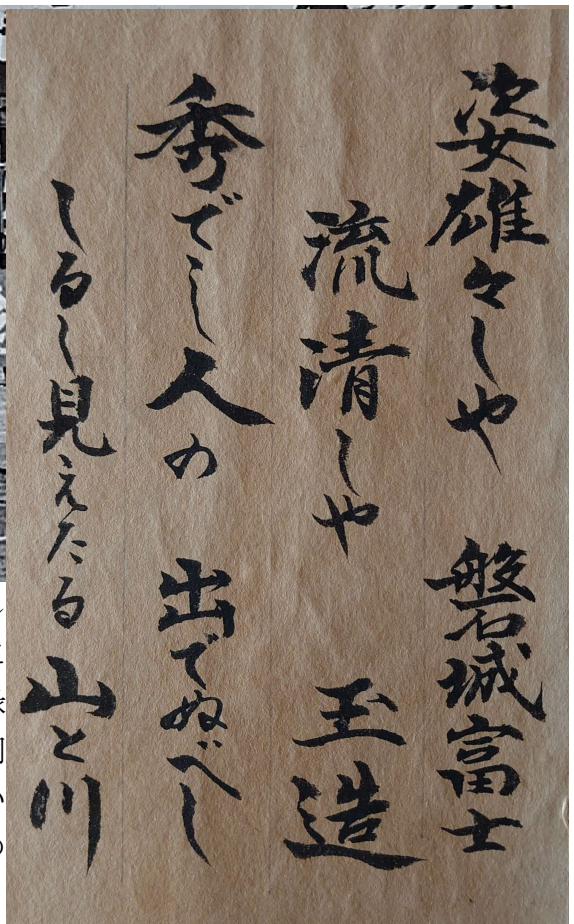 姿雄々しや　磐城富士
流清しや　玉造
秀でし人の　出でぬべし
しるく見えたる　山と川